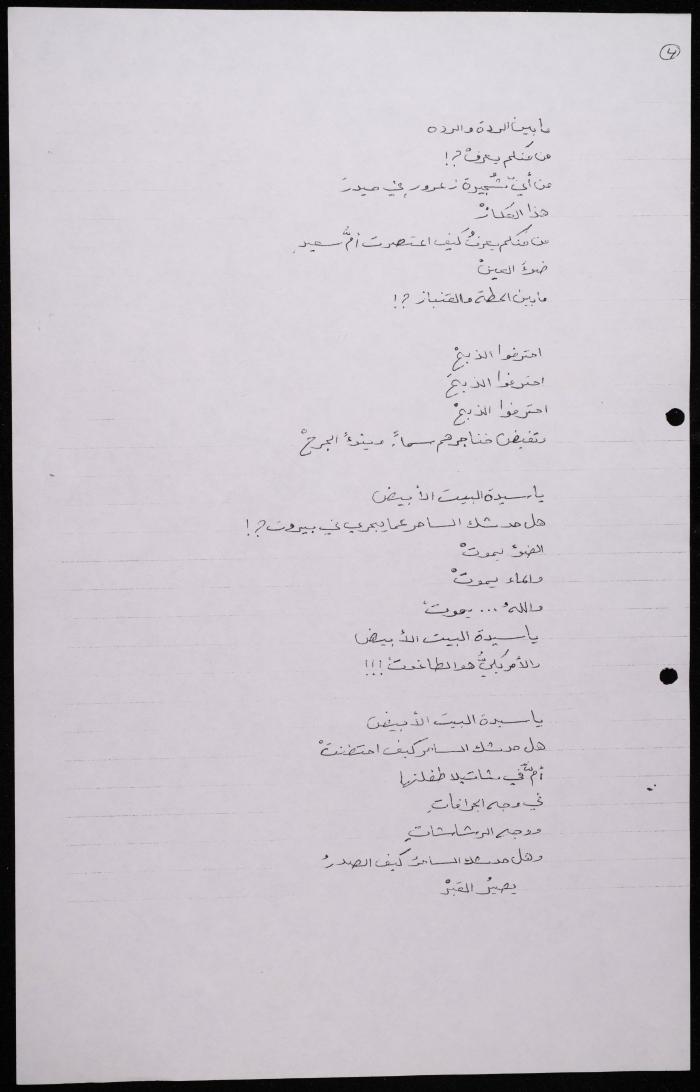 ٤
ما بين الردة والرده
من منكم يعرفْ ?!
من أيّ شُجيرة زعرورٍ في حيدرَ
هذا العكازْ
من منكم يعرفُ كيف اعتصرت أمُّ سعيدٍ
ضوءَ العينْ
ما بين الحطة والقنباز ?!
احترفوا الذبحْ
احترفوا الذبحَ
احترفوا الذبحْ
وتفيض خناجرهم سماً وينوءُ الجرحْ
يا سيدة البيت الأبيض
هل حدثك الساحر عما يجري في بيروت ?!
الضوءُ يموتْ
والماء يموتْ
واللهُ ... يموتْ
يا سيدة البيت الأبيض
والأمريكيُّ هو الطاغوتْ !!!
يا سيدة البيت الأبيض
هل حدثك الساحر كيف احتضنتْ
أمٌّ في شاتيلا طفلتها
في وجه الجرافاتِ
ووجه الرشاشاتِ
وهل حدثك الساحرُ كيف الصدرُ
يصيرُ القبرْ